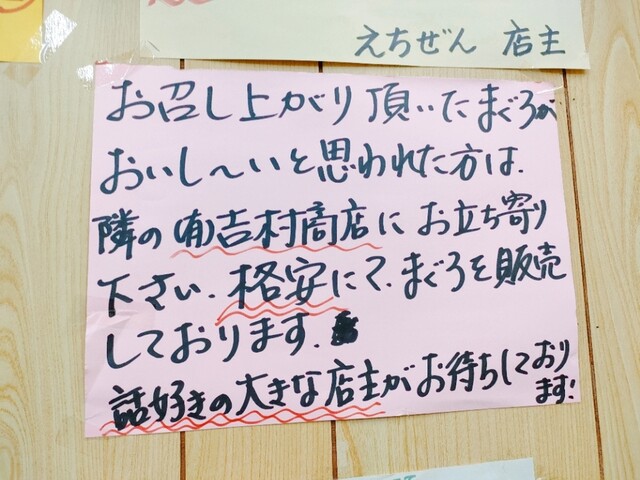 えちぜん 店主
お召し上がり頂いたまぐろが
おいし～いと思われた方は、
隣の㈲吉村商店にお立ち寄り
下さい。格安にて、まぐろを販売
しております。
話好きの大きな店主がお待ちしております!